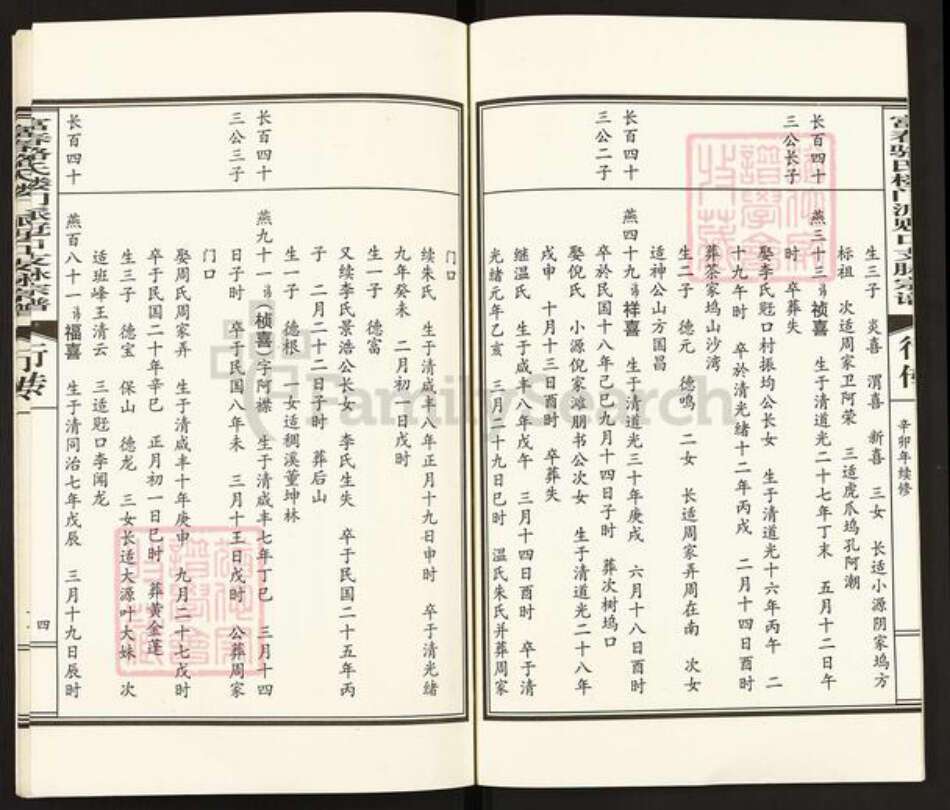 生三子　炎喜　渭喜　新喜　三女　长适小源阴家坞方
标祖　次适周家卫阿荣　三适虎爪坞孔阿潮
长百四十
三公长子
燕三十三　讳祯喜　生于清道光二十七年丁末　五月十二日午
时　卒葬失
娶李氏贬口村振均公长女　生于清道光十六年丙午　二
十九午时　卒於清光绪十二年丙戌　二月十四日酉时
葬茶家坞山沙湾
生二子　德元　德鸣　二女　长适周家弄周在南　次女
适神公山方国昌
长百四十
三公二子
燕四十九　讳祥喜　生于清道光三十年庚戌　六月十八日酉时
卒於民国十八年己巳九月十四日子时　葬次树坞口
娶倪氏　小源倪家滩朋书公次女　生于清道光二十八年
戊申　十月十三日酉时　卒葬失
继温氏　生于咸丰八年戊午　三月十四日酉时　卒于清
光绪元年乙亥　三月二十九日巳时　温氏朱氏并葬周家
门口
续朱氏　生于清咸丰八年正月十九日申时　卒于清光绪
九年癸未　二月初一日戌时
生一子　德富
又续李氏景浩公长女　李氏生失　卒于民国二十五年丙
子　二月二十二日子时　葬后山
生一子　德根　一女适稠溪董坤林
长百四十
三公三子
燕九十一　讳(桢喜)字阿襟　生于清咸丰七年丁巳　三月十四
日子时　卒于民国八年未　三月十王日戊时　公葬周家
门口
娶周氏周家弄　生于清咸丰十年庚申　九月二十七戊时
卒于民国二十年辛巳　正月初一日巳时　葬黄金蓬
生三子　德宝　保山　德龙　三女长适大源叶大妹　次
适班峰王清云　三适贬口李闻龙
长百四十
燕百八十一　讳福喜　生于清同治七年戊辰　三月十九日辰时
行传
辛卯年续修
行传
四
FamilySearch